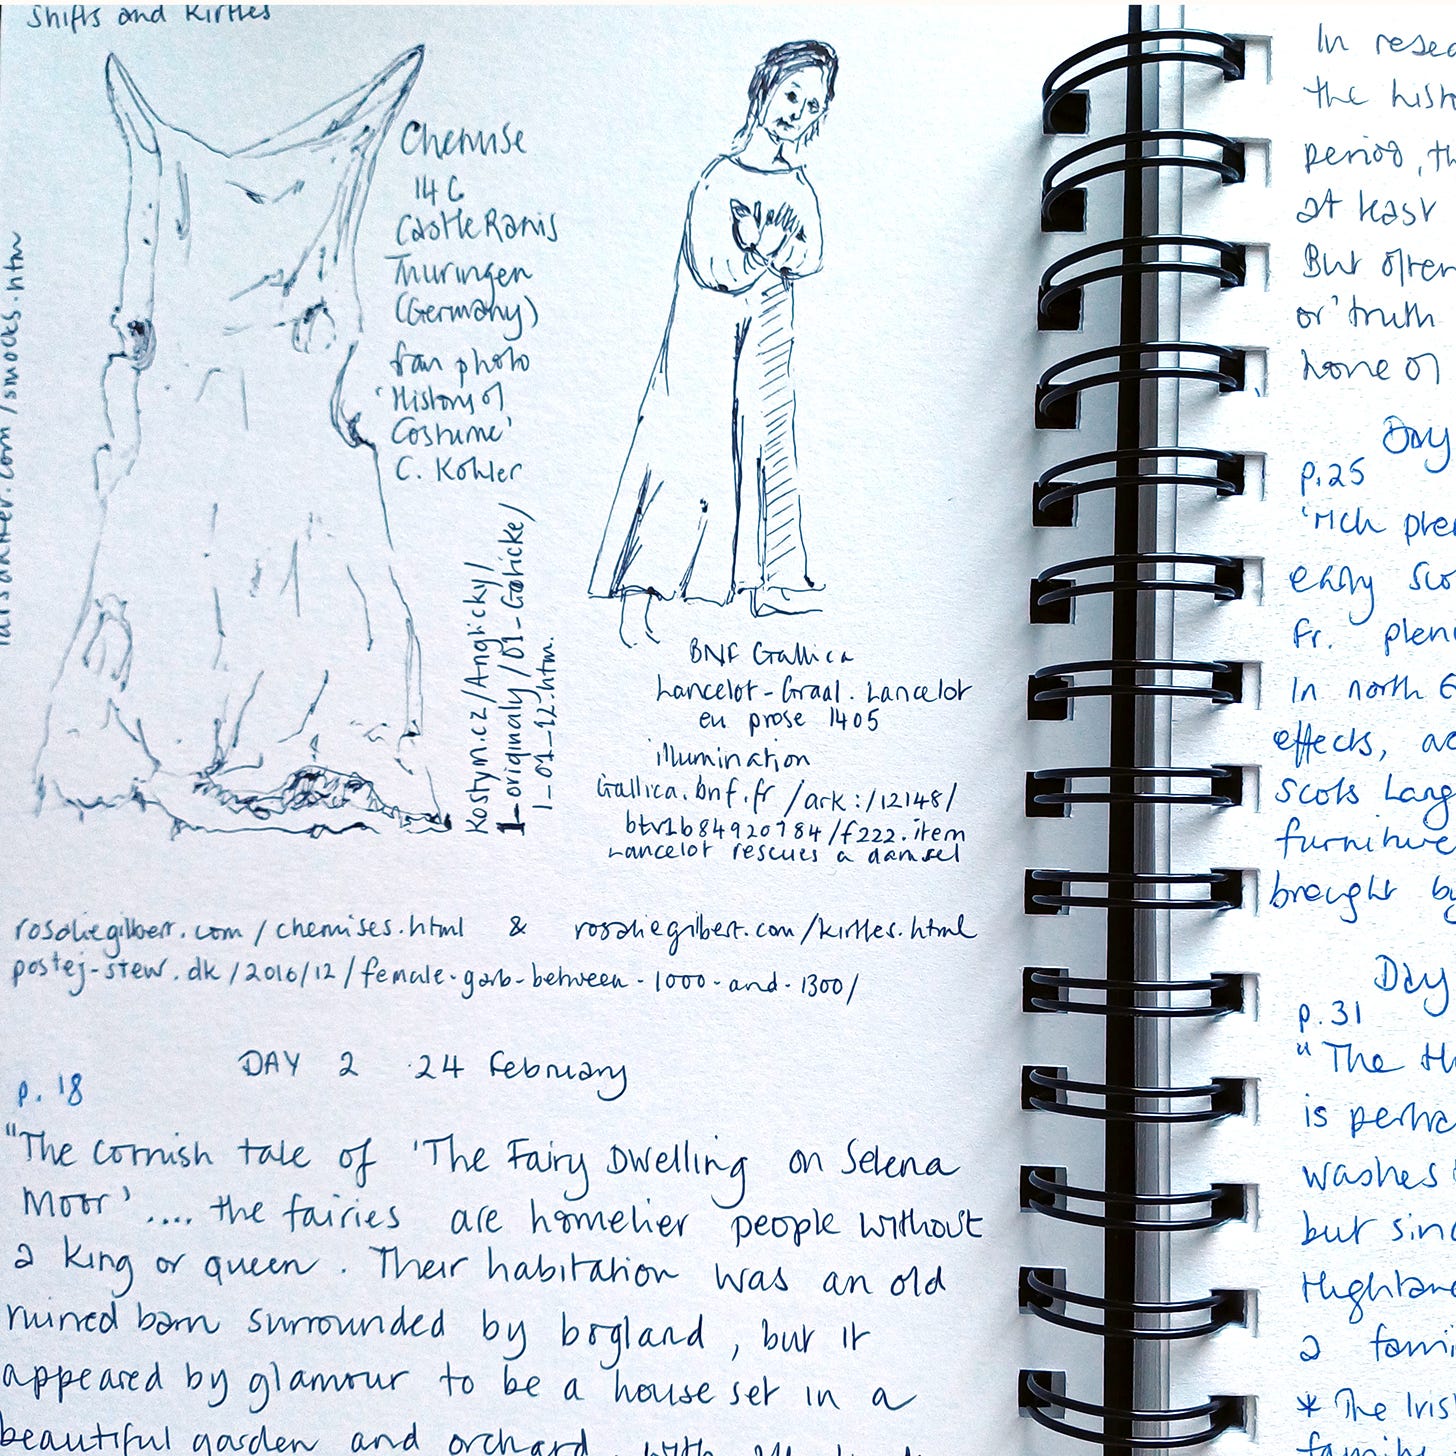 Shifts and Kirtles
Chemise
14 C
Castle Ranis
Thuringen
(Germany)
from photo
'History of
Costume'
C. Kohler
larsdatter.com/smocks.htm
Kostym.cz/Anglicky/
1-originaly/01-Gotické/
1-01-12.htm.
BNF Gallica
Lancelot-Graal. Lancelot
en prose 1405
illumination
Gallica.bnf.fr/ark:/12148/
btv1b84920984/f222.item
Lancelot rescues a damsel
rosaliegilbert.com/chemises.html & rosaliegilbert.com/kirtles.html
postej-stew.dk/2016/12/female-garb-between-1000-and-1300/
DAY 2 24 February
p. 18
"The Cornish tale of 'The Fairy Dwelling on Selena
Moor'.... the fairies are homelier people without
a king or queen. Their habitation was an old
ruined barn surrounded by bogland, but it
appeared by glamour to be a house set in a
beautiful garden and orchard, with
In
the
period, th
at least
But often
or 'truth
none of
Day
p.25
early
Fr.
In north
effects,
Scots Lang
furniture
brought by
Day
p. 31
"The
is perha
washes
but sinc
Highland
a fami
* The Iris